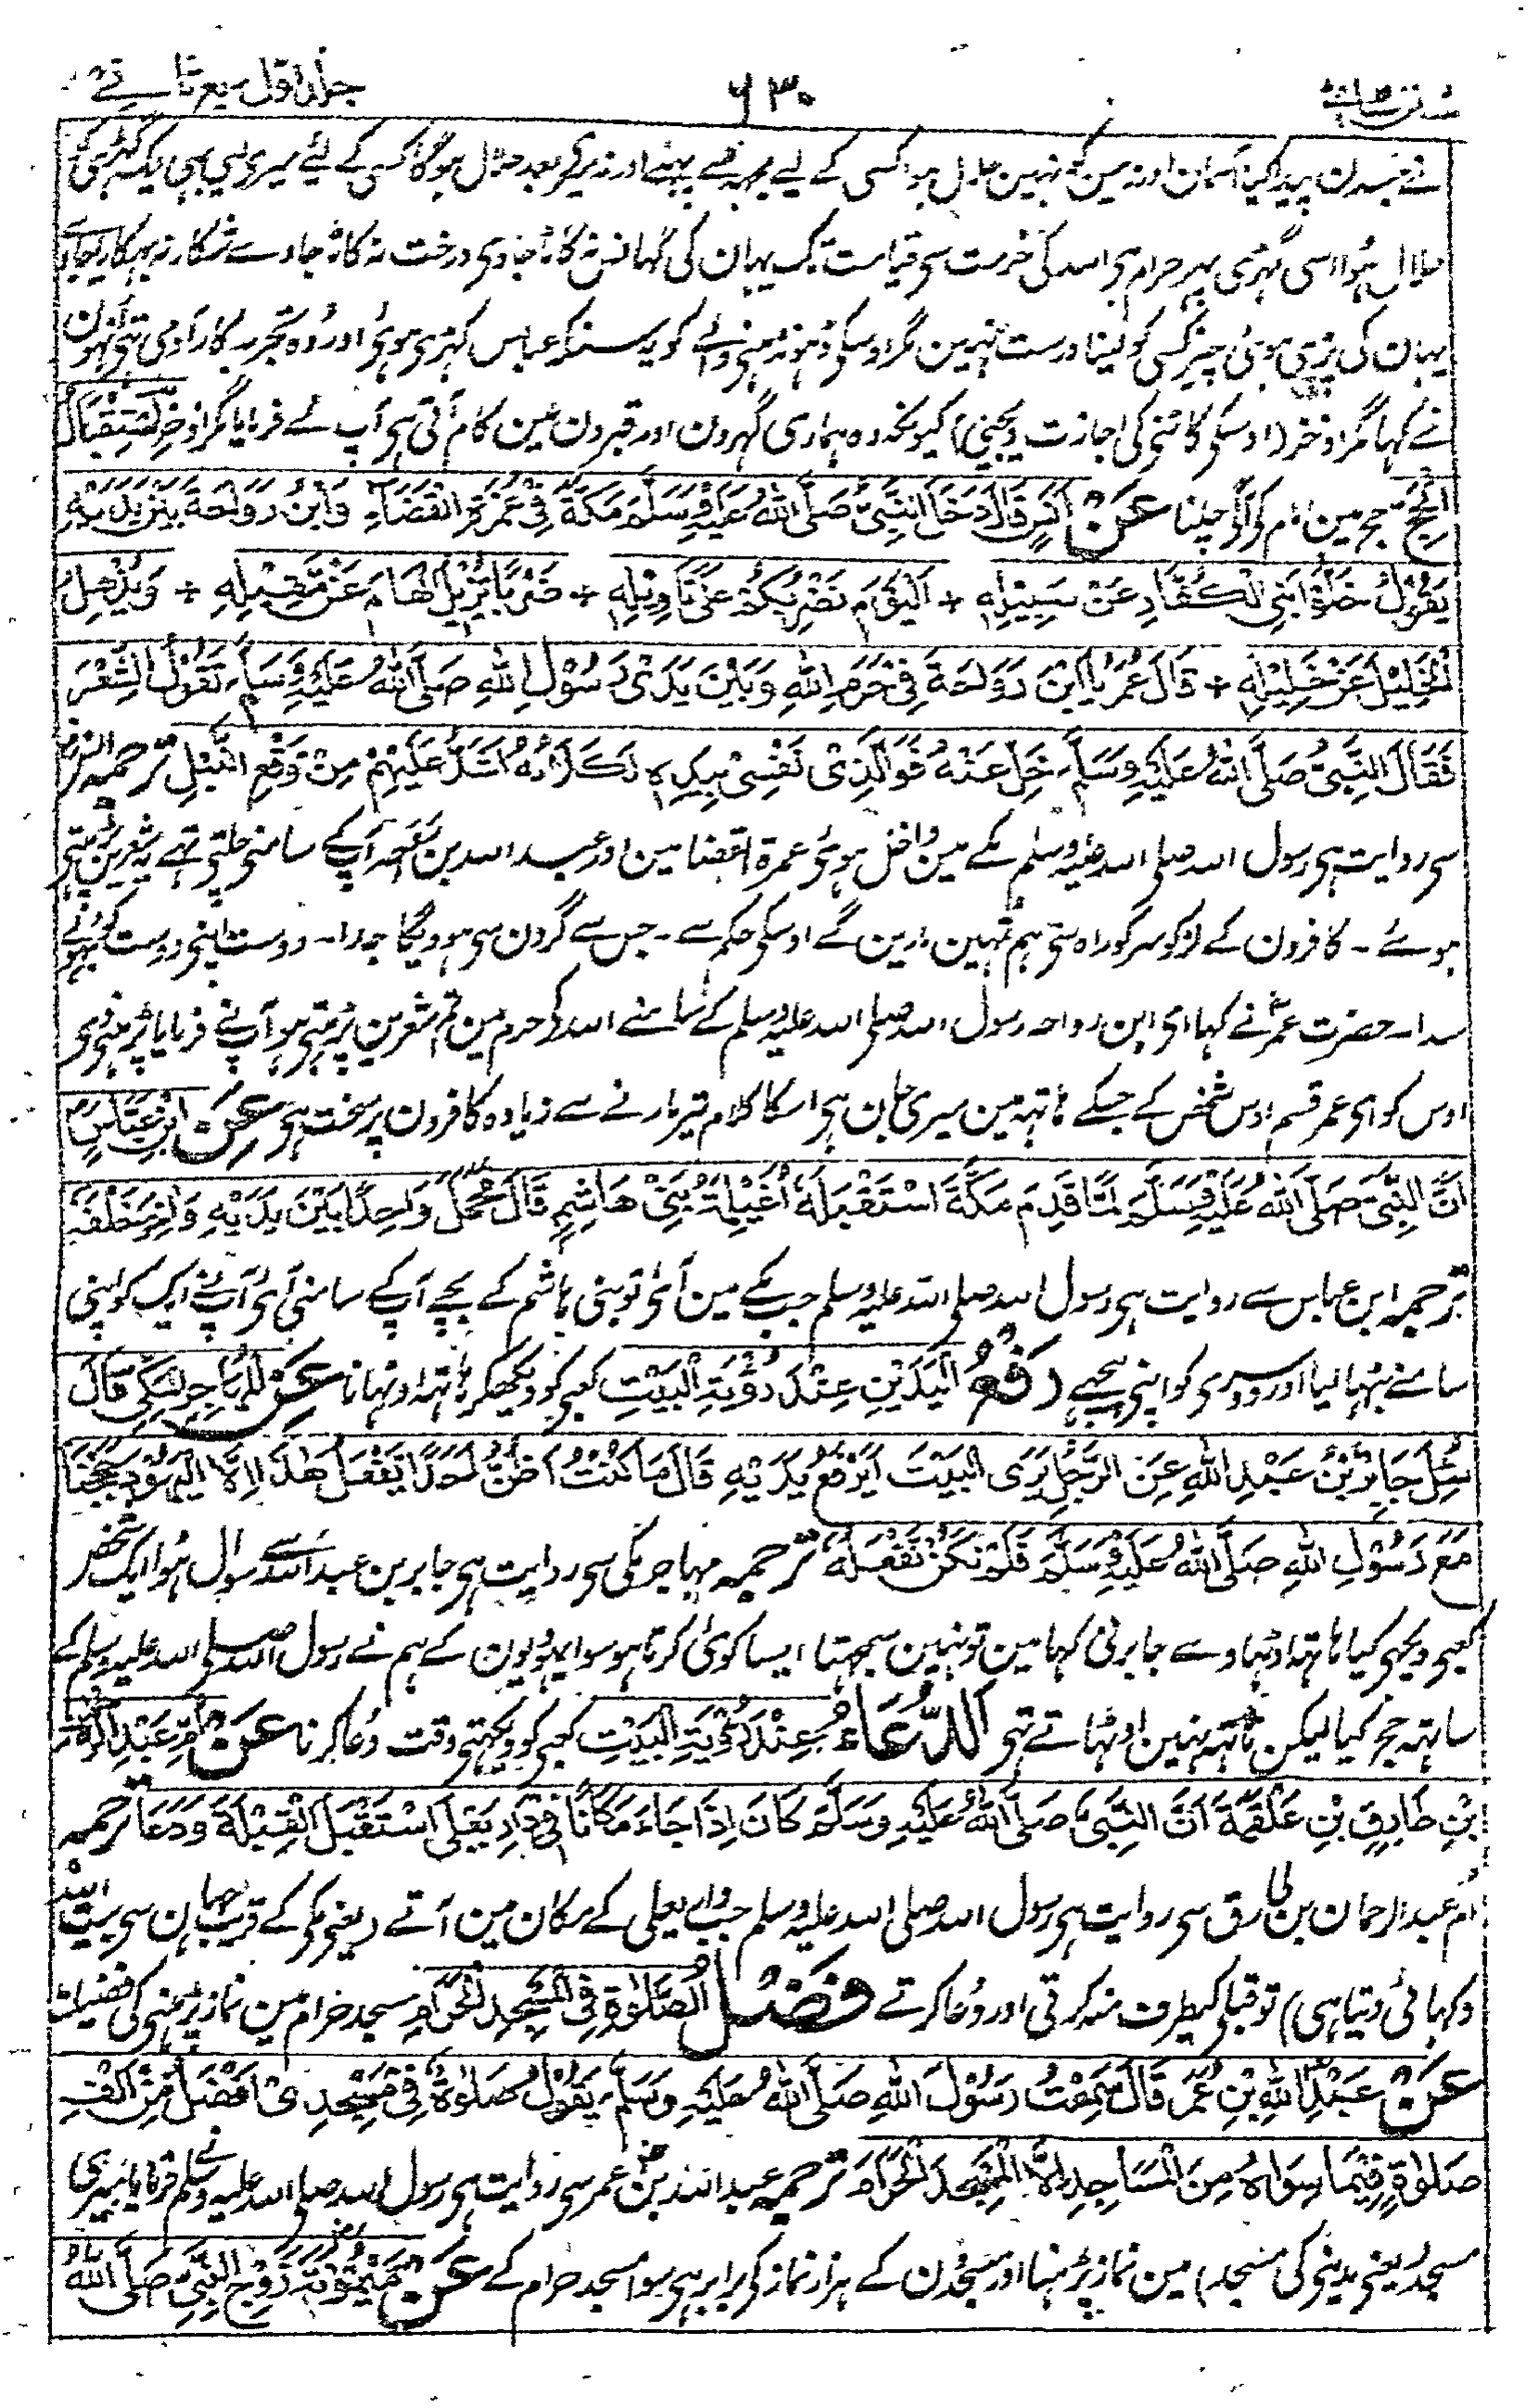 سنن نسائی ۶۳۰ جلد اول ربع ثانی
نے جس دن پیدا کیا آسمان اور زمین کو نہین حلال ہوا کسی کے لیے مجہہ سے پہلے اور نہ میری بعد حلال ہوگا کسی کے لئے میری لیی بہی ایک گہڑی
حلال ہوا اسی گہڑی پہر حرام ہی اللہ کی حرمت سی قیامت تک یہان کی گہانس نہ کاٹی جاوی درخت نہ کاٹا جاوے شکار نہ بہگایا جاوے
یہان کی پڑی ہوئی چیز کسی کو لینا درست نہین مگر اوسکی ڈہونڈہنی والے کو یہ سنکر عباس کہڑی ہوئی اور وہ تجربہ کار آدمی تہی انہون
نے کہا مگر اذخر (اوسکی کاٹنی کی اجازت دیجئی) کیونکہ وہ ہماری گہرون اور قبرون مین کام آتی ہی آپ نے فرمایا مگر اذخر اِسْتِقْبَالُ
الْحَجِّ حج مین امام کو آگو چلنا عَنْ اَنَسٍ قَالَ دَخَلَ النَّبِیُّ صَلَّی اللهُ عَلَیْهِ وَسَلَّمَ مَکَّةَ فِیْ عُمْرَةِ الْقَضَاءِ وَابْنُ رَوَاحَةَ بَیْنَ یَدَیْهِ
یَقُوْلُ خَلُّوْا بَنِی الْکُفَّارِ عَنْ سَبِیْلِهِ + اَلْیَوْمَ نَضْرِبُکُمْ عَلٰی تَاوِیْلِهِ + ضَرْبًا یُزِیْلُ الْهَامَ عَنْ مَقِیْلِهِ + وَیُذْهِلُ
الْخَلِیْلَ عَنْ خَلِیْلِهِ + قَالَ عُمَرُ یَا ابْنَ رَوَاحَةَ فِیْ حَرَمِ اللهِ وَبَیْنَ یَدَیْ رَسُوْلِ اللهِ صَلَّی اللهُ عَلَیْهِ وَسَلَّمَ تَقُوْلُ الشِّعْرَ
فَقَالَ النَّبِیُّ صَلَّی اللهُ عَلَیْهِ وَسَلَّمَ خَلِّ عَنْهُ فَوَالَّذِیْ نَفْسِیْ بِیَدِهِ لَکَلَامُهُ اَشَدُّ عَلَیْهِمْ مِنْ وَقْعِ النَّبْلِ ترجمہ انس
سی روایت ہی رسول اللہ صلی اللہ علیہ وسلم مکے مین داخل ہوئی عمرۃ القضا مین اور عبد اللہ بن رواحہ آپکے سامنی چلتی تہے یہ شعرین پڑہتی
ہوئے ۔ کافرون کے لڑکو سرکو راہ سے ہم تمہین مارین گے اوسکی حکم سے ۔ جس سے گردن سی ہوویگا سر جدا ۔ دوست اپنی دوست کو بہولے
سدا ۔ حضرت عمرؓ نے کہا ای ابن رواحہ رسول اللہ صلی اللہ علیہ وسلم کے سامنے اللہ کی حرم مین تم شعرین پڑہتی ہو آپ نے فرمایا پڑہنی دی
اوس کو ای عمر قسم اوس شخص کے جسکے ہاتہہ مین میری جان ہی اسکا کلام تیر مارنے سے زیادہ کافرون پر سخت ہی عَنْ ابْنِ عَبَّاسٍ
اَنَّ النَّبِیَّ صَلَّی اللهُ عَلَیْهِ وَسَلَّمَ لَمَّا قَدِمَ مَکَّةَ اسْتَقْبَلَهُ اُغَیْلِمَةُ بَنِیْ هَاشِمٍ قَالَ فَحَمَلَ وَاحِدًا بَیْنَ یَدَیْهِ وَاٰخَرَ خَلْفَهُ
ترجمہ ابن عباس سے روایت ہی رسول اللہ صلی اللہ علیہ وسلم جب مکے مین آئی تو بنی ہاشم کے بچے آپ کے سامنی آئی آپنے ایک کو اپنی
سامنے بٹہا لیا اور دوسری کو اپنی پیچہے رَفْعُ الْیَدَیْنِ عِنْدَ رُؤْیَةِ الْبَیْتِ کعبی کو دیکہکر ہاتہہ اوٹہانا عَنْ الْمُهَاجِرِ الْمَکِّیِّ قَالَ
سُئِلَ جَابِرُ بْنُ عَبْدِ اللهِ عَنِ الرَّجُلِ یَرَی الْبَیْتَ اَیَرْفَعُ یَدَیْهِ قَالَ مَا کُنْتُ اَظُنُّ اَحَدًا یَفْعَلُ هٰذَا اِلَّا الْیَهُوْدَ حَجَجْنَا
مَعَ رَسُوْلِ اللهِ صَلَّی اللهُ عَلَیْهِ وَسَلَّمَ فَلَمْ نَکُنْ نَفْعَلُهُ ترجمہ مہاجر مکی سی روایت ہی جابر بن عبد اللہ سے سوال ہوا ایک شخص
کعبی دیکہی کیا ہاتہہ اوٹہاوے جابر نی کہا مین تو نہین سمجہتا ایسا کوئی کرتا ہو سوا یہودیون کے ہم نے رسول اللہ صلی اللہ علیہ وسلم کے
ساتہہ حج کیا لیکن ہاتہہ نہین اوٹہاتے تہی اَلدُّعَاءُ عِنْدَ رُؤْیَةِ الْبَیْتِ کعبی کو دیکہتی وقت دعا کرنا عَنْ اُمِّ عَبْدِ الرَّحْمٰنِ
بْنِ طَارِقِ بْنِ عَلْقَمَةَ اَنَّ النَّبِیَّ صَلَّی اللهُ عَلَیْهِ وَسَلَّمَ کَانَ اِذَا جَاءَ مَکَانًا فِیْ دَارِ یَعْلٰی اسْتَقْبَلَ الْقِبْلَةَ وَدَعَا ترجمہ
ام عبد الرحمان بن طارق سی روایت ہی رسول اللہ صلی اللہ علیہ وسلم جب دار یعلی کے مکان مین آتے (یعنی مکی کے قریب جہان سی بیت اللہ
دکہائی دیتا ہی) تو قبلی کیطرف منہ کرتی اور دعا کرتے فَضْلُ الصَّلٰوةِ فِی الْمَسْجِدِ الْحَرَامِ مسجد حرام مین نماز پڑہنی کی فضیلت
عَنْ عَبْدِ اللهِ بْنِ عُمَرَ قَالَ سَمِعْتُ رَسُوْلَ اللهِ صَلَّی اللهُ عَلَیْهِ وَسَلَّمَ یَقُوْلُ صَلٰوةٌ فِیْ مَسْجِدِیْ اَفْضَلُ مِنْ اَلْفِ
صَلٰوةٍ فِیْمَا سِوَاهُ مِنَ الْمَسَاجِدِ اِلَّا الْمَسْجِدَ الْحَرَامَ ترجمہ عبد اللہ بن عمر سی روایت ہی رسول اللہ صلی اللہ علیہ وسلم نے فرمایا میری
مسجد (یعنی مدینی کی مسجد) مین نماز پڑہنا اور مسجدون کے ہزار نماز کی برابر ہی سوا مسجد حرام کے عَنْ مَیْمُوْنَةَ زَوْجِ النَّبِیِّ صَلَّی اللهُ